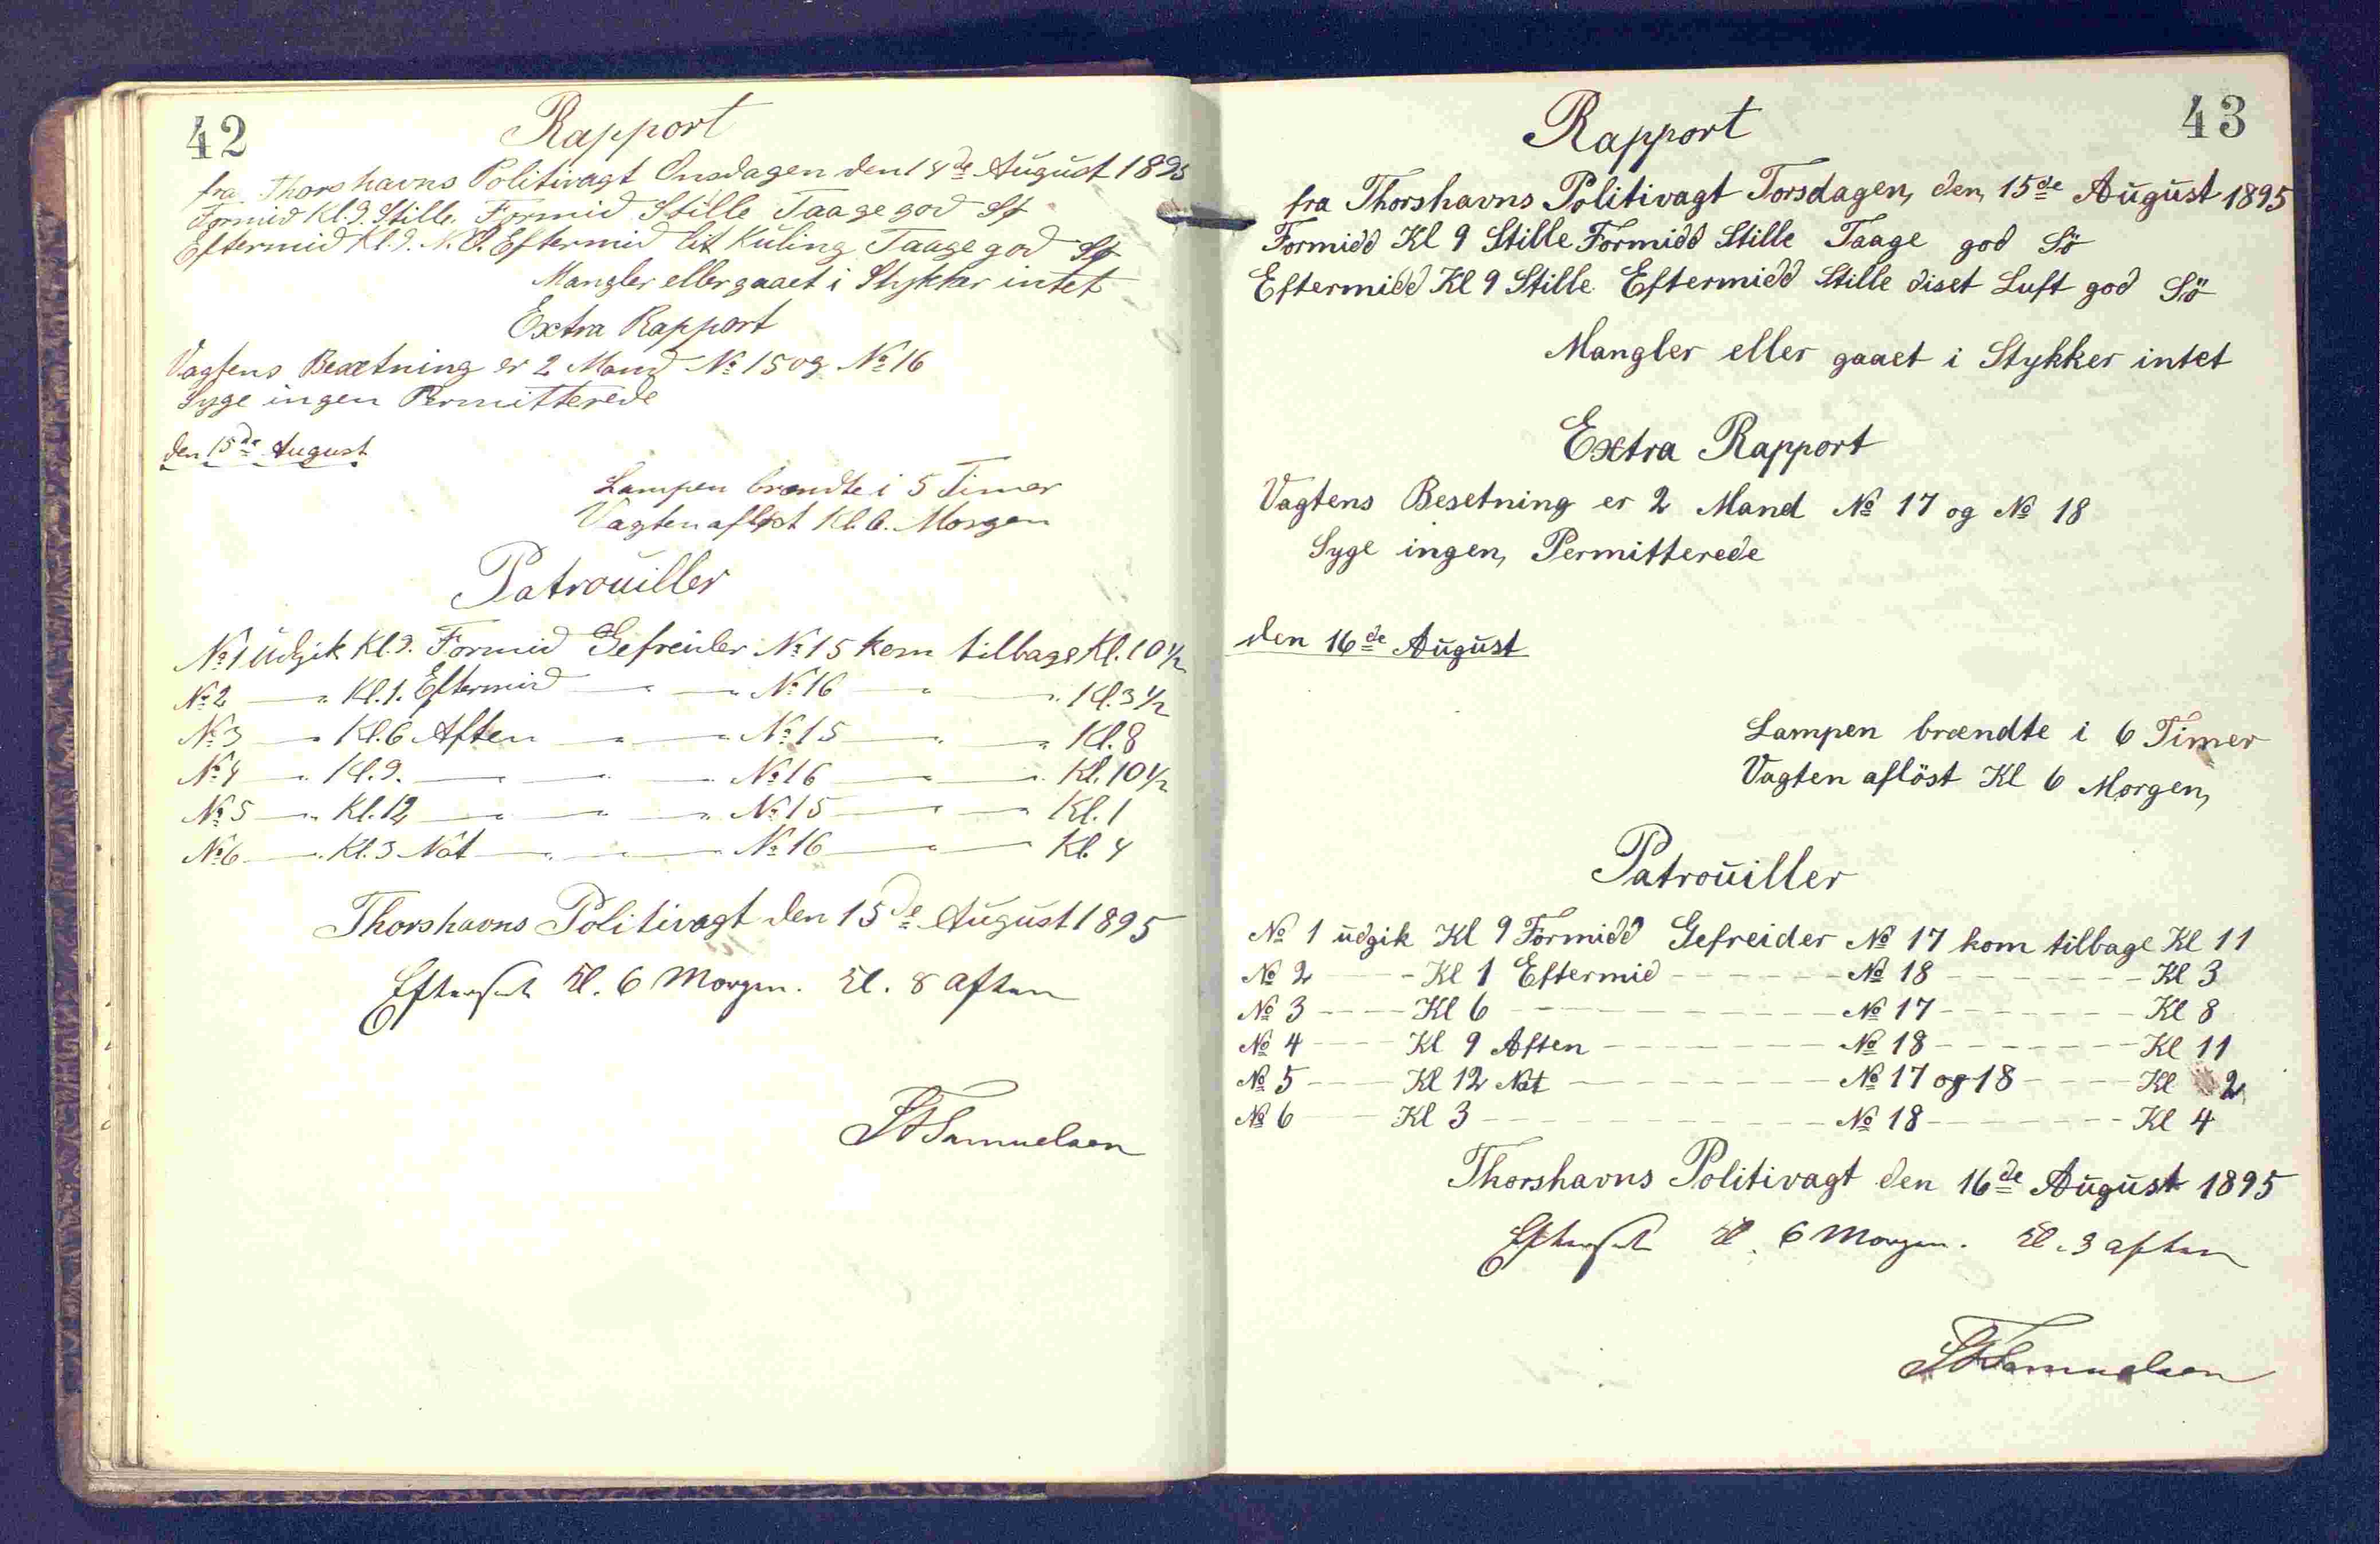 42
Rapport
fra Thorshavns Politivagt Onsdagen den 14de August 1895
Formid Kl. 9. Stille. Formid Stille Taage god Sø
Eftermid Kl. 9. N.O. Eftermid lit Kuling Taage god Sø
Mangler eller gaaet i Stykker intet
Extra Rapport
Vagtens Besætning er 2 Mand № 15 og № 16
Syge ingen Permitterede
den 15de August
Lampen brændte i 5 Timer
Vagten afløst Kl. 6. Morgen
Patrouiller
№ 1 Udgik Kl. 9. Formid Gefreider № 15 kom tilbage Kl. 10 1/2
№ 2 — " Kl. 1. Eftermid — " — " № 16 — " — " Kl. 3 1/2
№ 3 — " Kl. 6 Aften — " — " № 15 — " — " Kl. 8
№ 4 — " Kl. 9. — " — " — " № 16 — " — " Kl. 10 1/2
№ 5 — " Kl. 12 — " — " — " № 15 — " — " Kl. 1
№ 6 — " Kl. 3 Nat — " — " № 16 — " — " Kl. 4
Thorshavns Politivagt den 15de August 1895
Efterset Kl. 6 Morgen. Kl. 8 Aften
Samuelsen
43
Rapport
fra Thorshavns Politivagt Torsdagen, den, 15de August 1895
Formidd Kl 9 Stille Formidd Stille Taage god Sö
Eftermidd Kl 9 Stille Eftermidd Stille diset Luft god Sö
Mangler eller gaaet i Stykker intet
Extra Rapport
Vagtens Besetning er 2 Mand № 17 og № 18
Syge ingen, Permitterede
den 16de August
Lampen brændte i 6 Timer
Vagten aflöst Kl 6 Morgen,
Patrouiller
№ 1 udgik Kl 9 Formidd Gefreider № 17 kom tilbage Kl 11
№ 2 - - - Kl 1 Eftermid - - - - - № 18 - - - - - Kl 3
№ 3 - - - Kl 6 - - - - - № 17 - - - - - Kl 8
№ 4 - - - Kl 9 Aften - - - - - № 18 - - - - - Kl 11
№ 5 - - - Kl 12 Nat - - - - - № 17 og 18 - - - Kl 2
№ 6 - - - Kl 3 - - - - - № 18 - - - - - Kl 4
Thorshavns Politivagt den 16de August 1895
Efterset Kl. 6 Morgen. Kl. 9 aften
Samuelsen